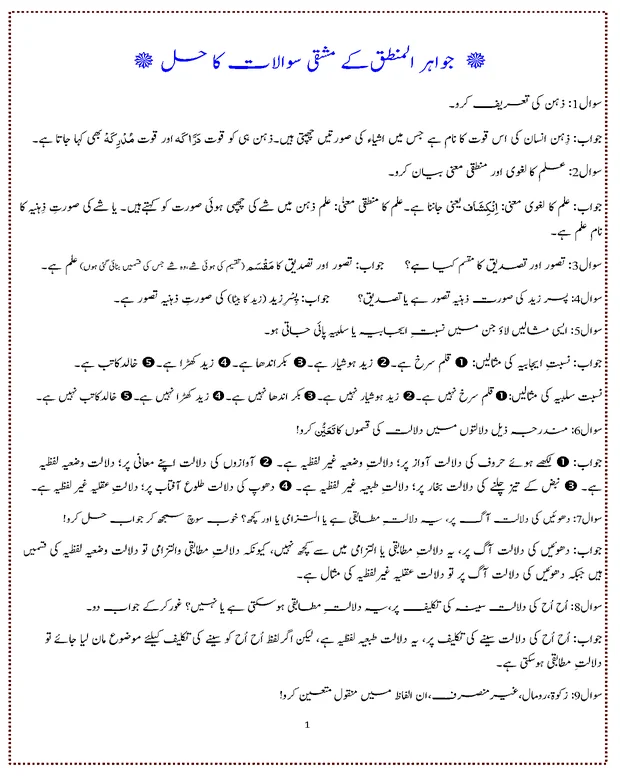 جواہر المنطق کے مشقی سوالات کا حل
سوال1: ذہن کی تعریف کرو۔
جواب: ذِہن انسان کی اس قوت کا نام ہے جس میں اشیاء کی صورتیں چھپتی ہیں۔ذہن ہی کو قوت دَرَّاکَہ اور قوت مُدْرِکَہْ بھی کہا جاتا ہے۔
سوال2: علم کا لغوی اور منطقی معنی بیان کرو۔
جواب: علم کا لغوی معنی: اِنْکِشَاف یعنی جاننا ہے۔علم کا منطقی معنیٰ: علم ذہن میں شے کی چھپی ہوئی صورت کو کہتے ہیں۔ یا شے کی صورتِ ذِہنیہ کا
نام علم ہے۔
سوال3: تصور اور تصدیق کا مقسم کیا ہے؟ جواب: تصور اور تصدیق کا مَقْسَم (تقسیم کی ہوئی شے،وہ شے جس کی قسمیں بنائی گئی ہوں) علم ہے۔
سوال4: پسر زید کی صورت ذہنیہ تصور ہے یا تصدیق؟ جواب: پسَرِ زید (زید کا بیٹا) کی صورتِ ذہنیہ تصور ہے۔
سوال5: ایسی مثالیں لاؤ جن میں نسبتِ ایجابیہ یا سلبیہ پائی جاتی ہو۔
جواب: نسبتِ ایجابیہ کی مثالیں: ❶ قلم سرخ ہے۔❷ زید ہوشیار ہے۔❸ بکر اندھا ہے۔❹ زید کھڑا ہے۔❺ خالد کاتب ہے۔
نسبت سلبیہ کی مثالیں:❶ قلم سرخ نہیں ہے۔❷ زید ہوشیار نہیں ہے۔❸ بکر اندھا نہیں ہے۔❹ زید کھڑا نہیں ہے۔❺ خالد کاتب نہیں ہے۔
سوال6: مندرجہ ذیل دلالتوں میں دلالت کی قسموں کا تَعَیُّن کرو!
جواب: ❶ لکھے ہوئے حروف کی دلالت آواز پر؛ دلالتِ وضعیہ غیر لفظیہ ہے۔ ❷ آوازوں کی دلالت اپنے معانی پر؛ دلالت وضعیہ لفظیہ
ہے۔ ❸ نبض کے تیز چلنے کی دلالت بخار پر؛ دلالتِ طبعیہ غیر لفظیہ ہے۔ ❹ دھوپ کی دلالت طلوع آفتاب پر؛ دلالتِ عقلیہ غیر لفظیہ ہے۔
سوال7: دھوئیں کی دلالت آگ پر، یہ دلالتِ مطابقی ہے یا التزامی یا اور کچھ؟ خوب سوچ سمجھ کر جواب حل کرو!
جواب: دھوئیں کی دلالت آگ پر، یہ دلالتِ مطابقی یا التزامی میں سے کچھ نہیں، کیونکہ دلالتِ مطابقی والتزامی تو دلالت وضعیہ لفظیہ کی قسمیں
ہیں جبکہ دھوئیں کی دلالت آگ پر تو دلالت عقلیہ غیر لفظیہ کی مثال ہے۔
سوال8: اُح اُح کی دلالت سینہ کی تکلیف پر،یہ دلالتِ مطابقی ہوسکتی ہے یا نہیں؟ غور کرکے جواب دو۔
جواب: اُح اُح کی دلالت سینے کی تکلیف پر، یہ دلالت طبعیہ لفظیہ ہے، لیکن اگر لفظ اُح اُح کو سینے کی تکلیف کیلئے موضوع مان لیا جائے تو
دلالتِ مطابقی ہوسکتی ہے۔
سوال9: زکوۃ،رومال،غیر منصرف،ان الفاظ میں منقول متعین کرو!
1